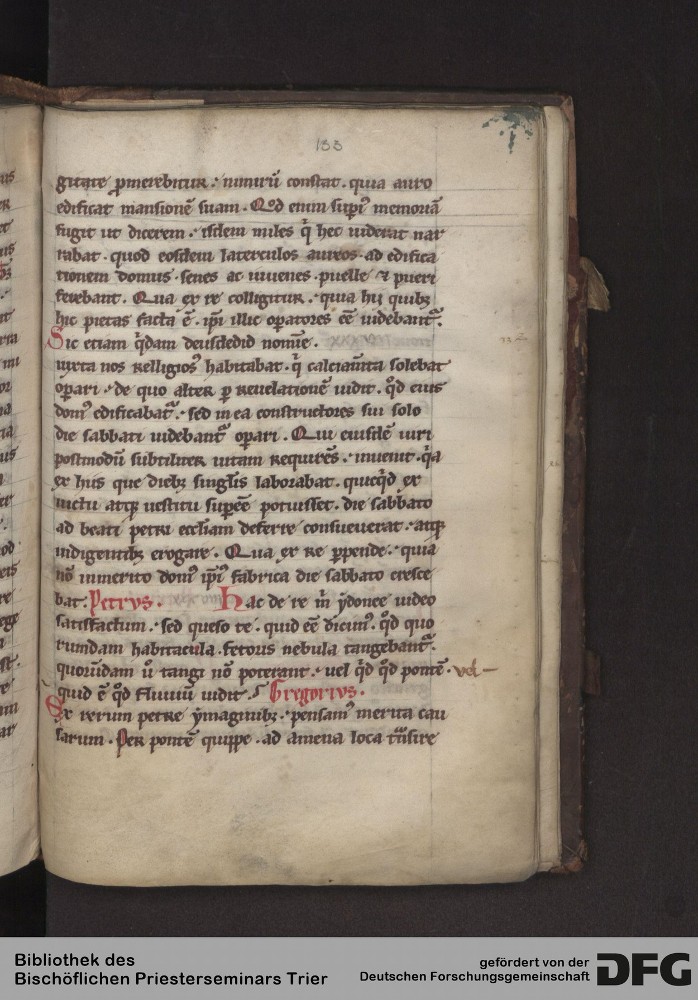 133
gitate ꝓmerebitur. nimirū constat. quia auro
edificat mansionē suam. Qd enim supi᷒ memoriā
fugit ut dicerem. isdem miles q̇ hec uiderat nar
rabat. quod eosdem laterculos aureos. ad edifica
tionem domus. senes ac iuuenes. puelle & pueri
ferebant. Qua ex re colligitur. quia hii quibꝫ
hic pietas facta ē. ipi illic opatores eē uidebant᷑.
Sic etiam q̇dam deusdedid nomīe.
iuxta nos religios᷒ habitabat. q̇ calciam̄ta solebat
opari. de quo alter ꝑ reuelationē uidit. qd eius
dom᷒ edificabat᷑. sed in ea constructores sui solo
die sabbati uidebant᷑ opari. Qui eiusdē uiri
postmodū subtiliter uitam requirēs. inuenit. q̇a
ex his que diebꝫ singlis laborabat. queq̇d ex
uictu atqꝫ uestitu supeēē potuisset. die sabbato
ad beati petri eccliam deferre consueuerat. atqꝫ
indigentibꝫ erogare. Qua ex re ꝑpende. quia
nō inmerito dom᷒ ipi᷒ fabrica die sabbato cresce
bat. Petrus. Hac de re m̄ ydonee uideo
satisfactum. sed queso te. quid eē dicim᷒. qd quo
rundam habitacula. fetoris nebula tangebant᷑.
quorūdam ū tangi nō poterant. uel q̇d qd pontē. vel —
quid ē qd fluuiū uidit. Gregorius.
Ex rerum petre ymaginibꝫ. pensam᷒ merita cau
sarum. Per pontē quippe. ad amena loca t̄nsire
Bibliothek des
Bischöflichen Priesterseminars Trier
gefördert von der
Deutschen Forschungsgemeinschaft
DFG